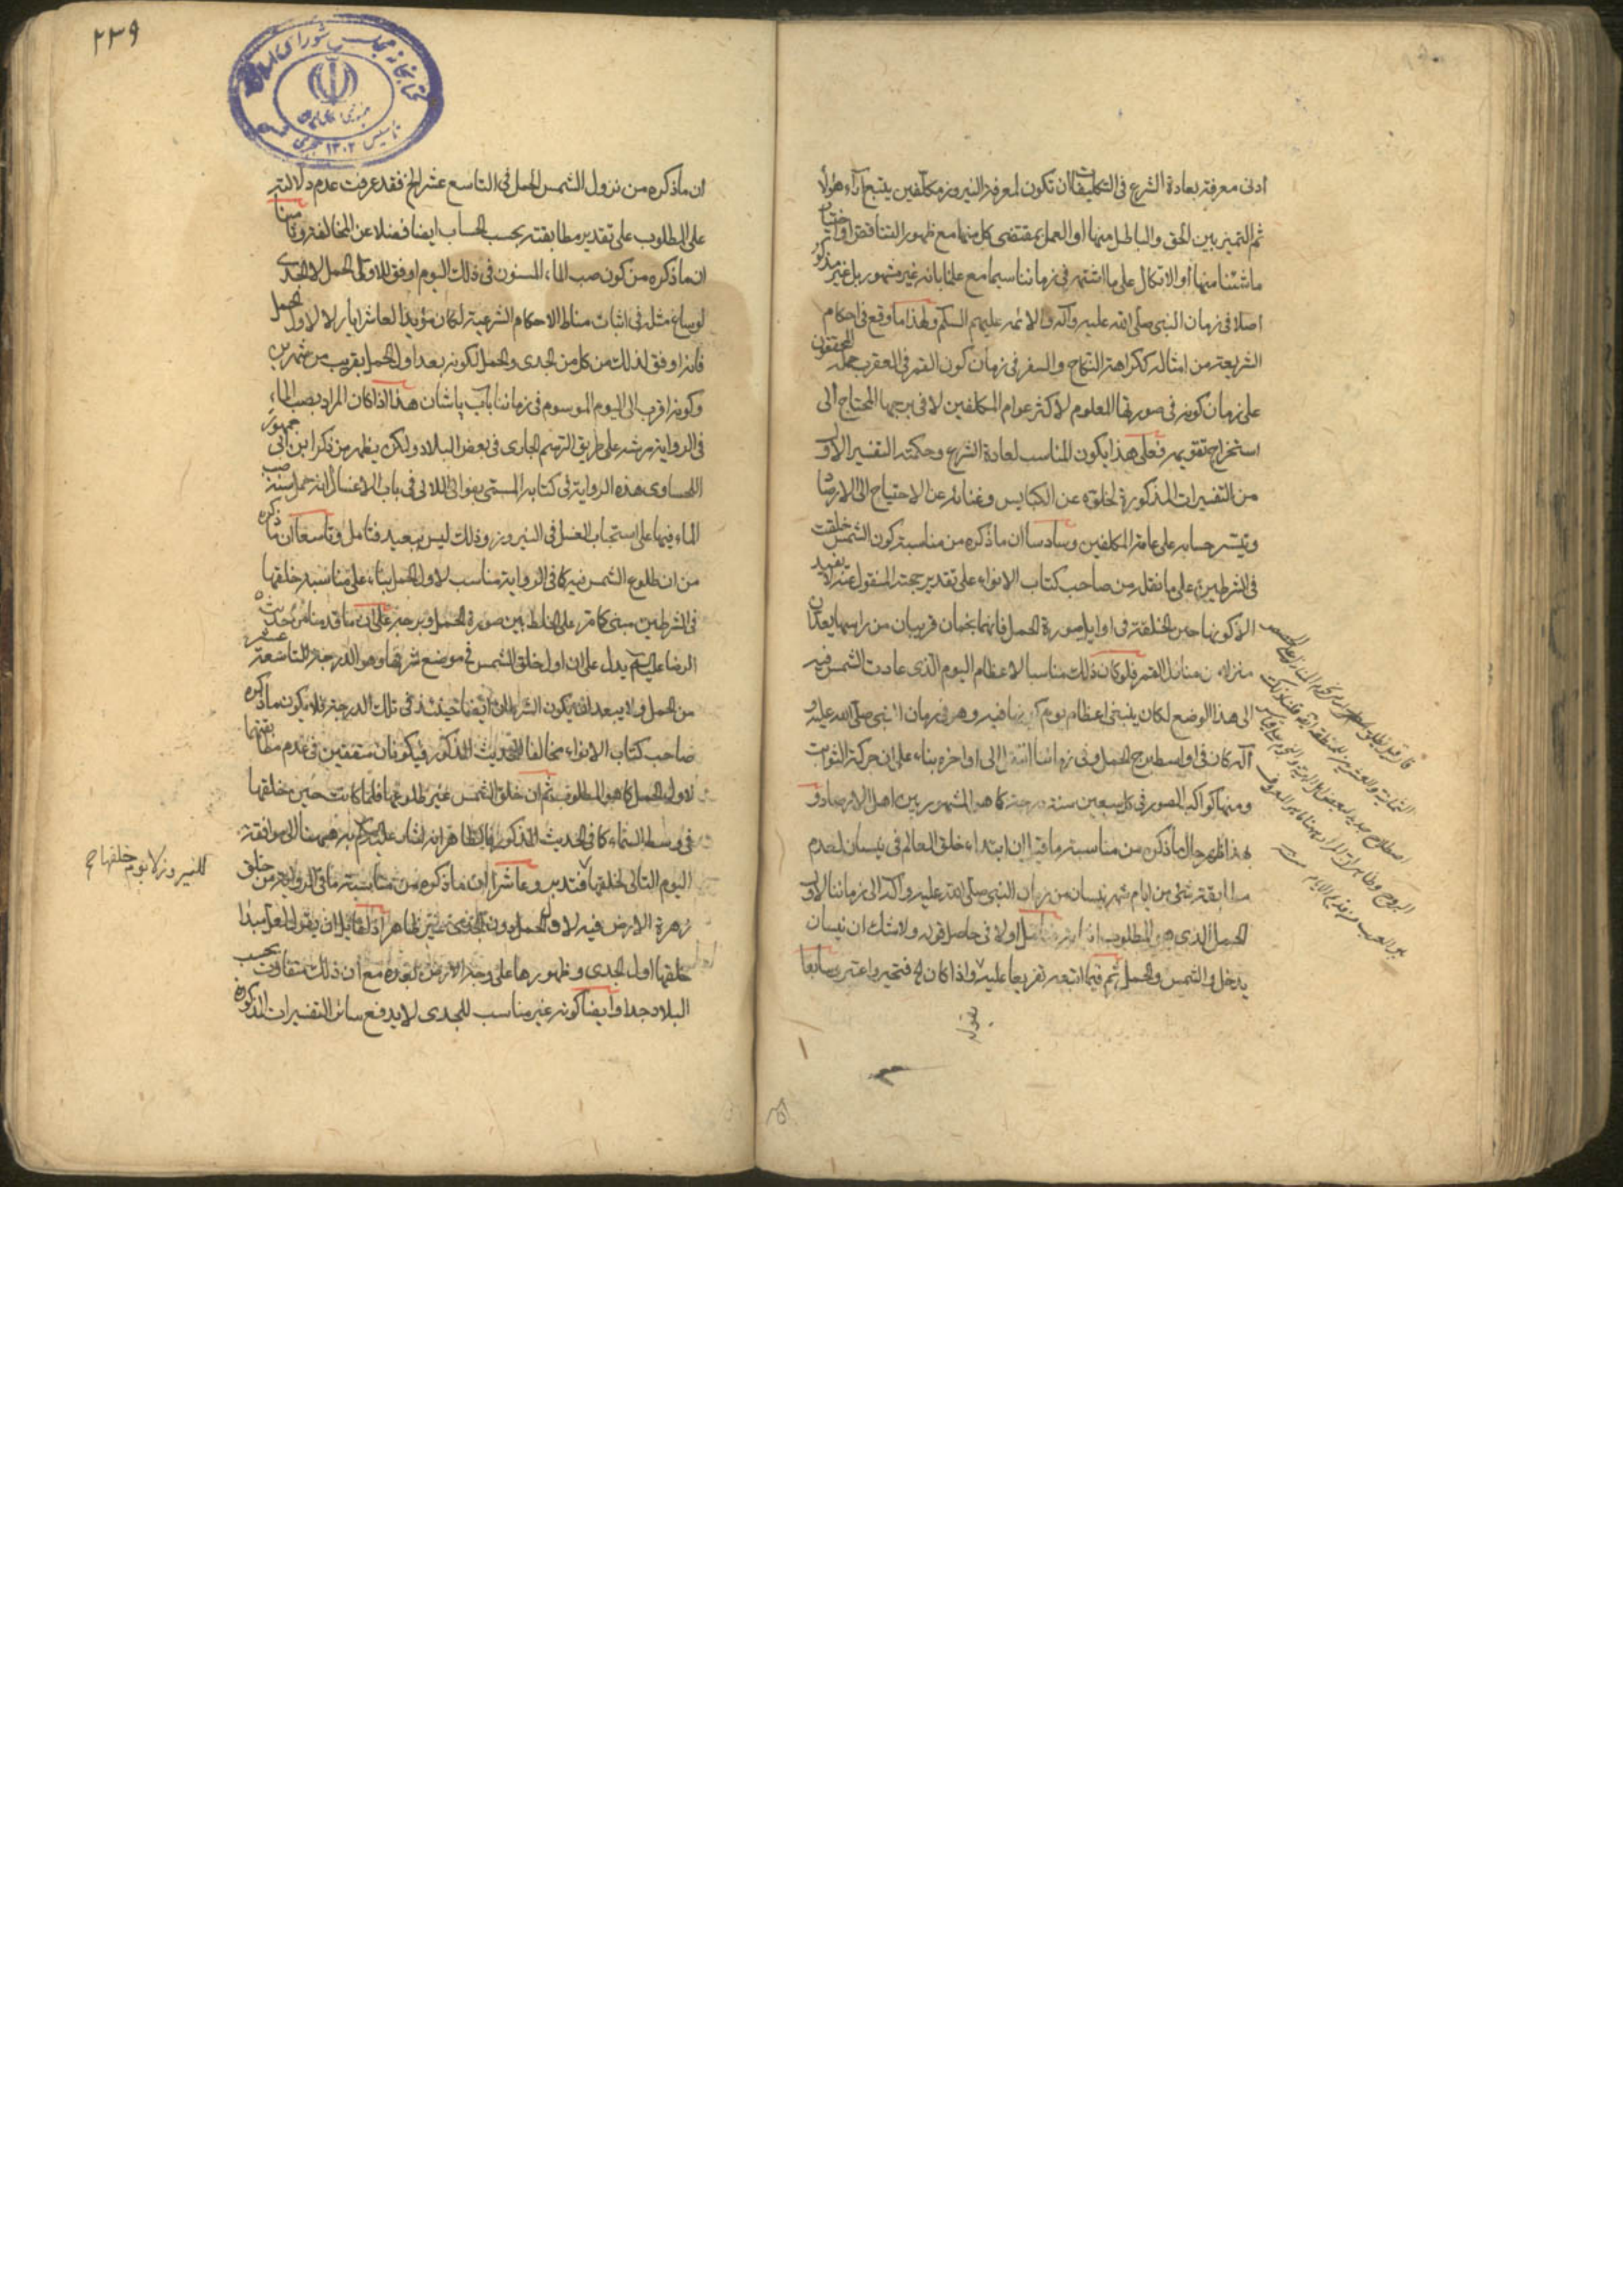 ادنى معرفة بعادة الشرع فى التكليفات ان تكون لمعرفة النيروز مكلفين بتتبع آراء هؤلاء
ثم التميز بين الحق والباطل منها او العمل بمقتضى كل منها مع ظهور التناقض او اختيار
ما شئنا منها او الاتكال على ما اشتهر فى زماننا سيما مع علمنا بانه غير مشهور بل غير مذكور
اصلا فى زمان النبى صلى الله عليه وآله والائمة عليهم السلم ولهذا ما وقع فى احكام
الشريعة من امثاله ككراهة النكاح والسفر فى زمان كون القمر فى العقرب حمله المحققون
على زمان كونه فى صورتها المعلوم لاكثر عوام المكلفين لا فى برجها المحتاج الى
استخراج تقويمه فعلى هذا يكون المناسب لعادة الشرع وحكمته التفسير الاول
من التفسيرات المذكورة لخلوه عن الكبايس وغنائه عن الاحتياج الى الارصاد
وتيسر حسابه على عامة المكلفين وسادسا ان ما ذكره من مناسبة كون الشمس خلقت
فى الشرطين على ما نقله من صاحب كتاب الانواء على تقدير حجة المنقول عنه لا يفيد
الا كونها حين الخلقة فى اوايل صورة الحمل فانهما نجمان قريبان من راسها يعدان
منزلا من منازل القمر فلو كان ذلك مناسبا لاعظام اليوم الذى عادت الشمس فيه
الى هذا الوضع لكان ينبغى اعظام يوم فيه وهو فى زمان النبى صلى الله عليه و
آله كان فى اواسط برج الحمل وفى زماننا انتقل الى اواخره بناء على ان حركة الثوابت
ومنها كواكب الصور فى كل سبعين سنة درجة كما هو المشهور بين اهل الارصاد و
بهذا ظهر حال ما ذكره من مناسبة ما قيل ان ابتداء خلق العالم فى نيسان لعدم
مطابقة شئ من ايام شهر نيسان من زمان النبى صلى الله عليه وآله الى زماننا لاول
الحمل الذى هو المطلوب اولا فى حاصل قوله ولا شك ان نيسان
يدخل والشمس فى الحمل ثم فيما اتبعه تفريعا عليه واذا كان فتحير واعتبر وسابعا
نقول
٢٣٩
كتابخانه مجلس شوراى اسلامى
تاسيس ١٣٠٢ هجرى
ان ما ذكره من نزول الشمس الحمل فى التاسع عشر الخ فقد عرفت عدم دلالته
على المطلوب على تقدير مطابقته بحسب الحساب ايضا فضلا عن المخالفة وثامنا
ان ما ذكره من كون صب الماء المسنون فى ذلك اليوم اوفق لاول الحمل لا الجدى
لو ساغ مثله فى اثبات مناط الاحكام الشرعية لكان مؤيدا لعاشر ايار لا لاول الحمل
فانه اوفق لذلك من كل من الجدى والحمل لكونه بعد اول الحمل بقريب من شهرين
وكونه اقرب الى اليوم الموسوم فى زماننا بآب پاشان هذا اذا كان المراد بصب الماء
فى الرواية رشه على طريق الرسم الجارى فى بعض البلاد ولكن يظهر من ذكر ابن ابى جمهور
اللحساوى هذه الرواية فى كتابه المسمى بغوالى اللالى فى باب الاغسال انه حمل سنة صب
الماء فيها على استحباب الغسل فى النيروز وذلك ليس ببعيد فتامل وتاسعا ان ما ذكره
من ان طلوع الشمس فيه كما فى الرواية مناسب لاول الحمل بناء على مناسبة خلقها
فى الشرطين مبنى كما مر على الخلط بين صورة الحمل وبرجه على ان ما قدمناه من حديث
الرضا عليه السلم يدل على ان اول خلق الشمس فى موضع شرفها وهو الدرجة التاسعة عشر
من الحمل ولا يبعد ان يكون الشرطان ايضا حينئذ فى تلك الدرجة فلا يكون ما ذكره
صاحب كتاب الانواء مخالفا للحديث المذكور فيكونان متفقين فى عدم مطابقتهما
لاول الحمل كما هو المطلوب ثم ان خلق الشمس غير طلوعها فلما كانت حين خلقها
فى وسط السماء كما فى الحديث المذكور فالظاهر انه اشار عليه السلم به ههنا الى موافقة
اليوم التالى لخلقها فتدبر وعاشرا ان ما ذكره من مناسبة ما فى الرواية من خلق
زهرة الارض فيه لاول الحمل دون الجدى غير ظاهر اذ لقائل ان يقول لعل مبدا
خلقها اول الجدى وظهورها على وجه الارض بعده مع ان ذلك متفاوت بحسب
البلاد جدا وايضا كونه غير مناسب للجدى لا يدفع سائر التفسيرات المذكورة
للنيروز لا يوم خلقها